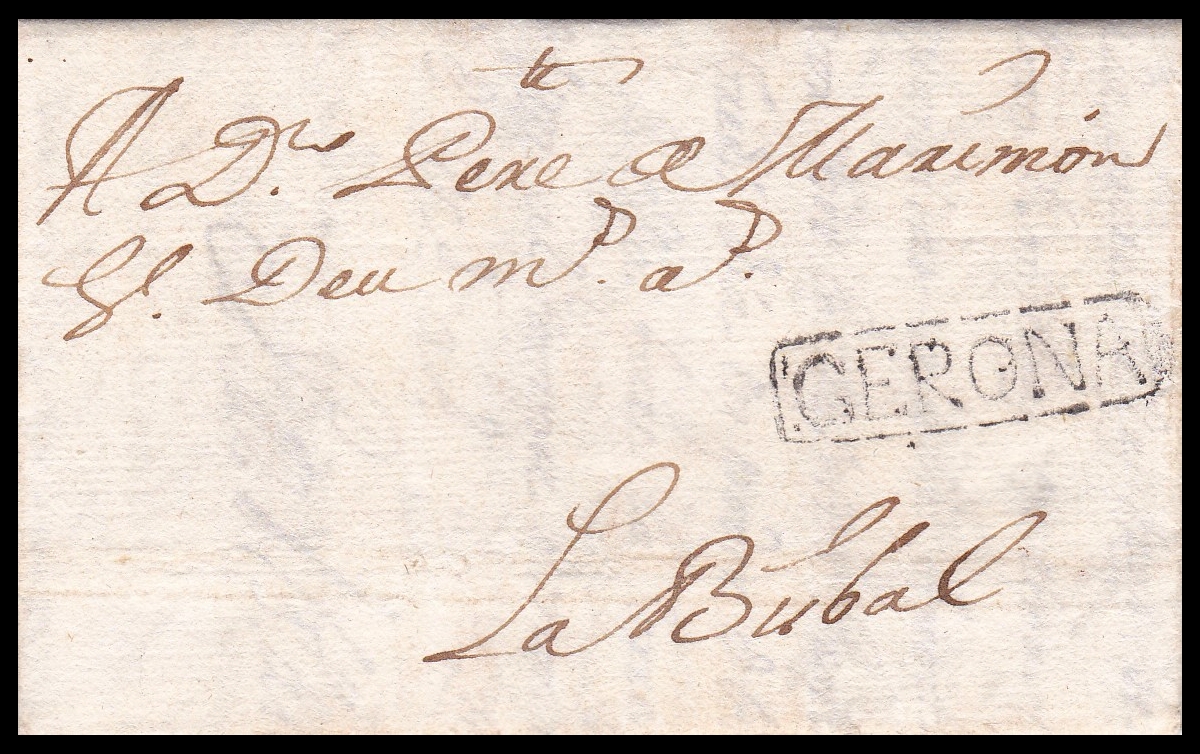 ✝
A Dn. Pere de Marimón
Gl. Deu md. ad.
GERONA
La Bubal